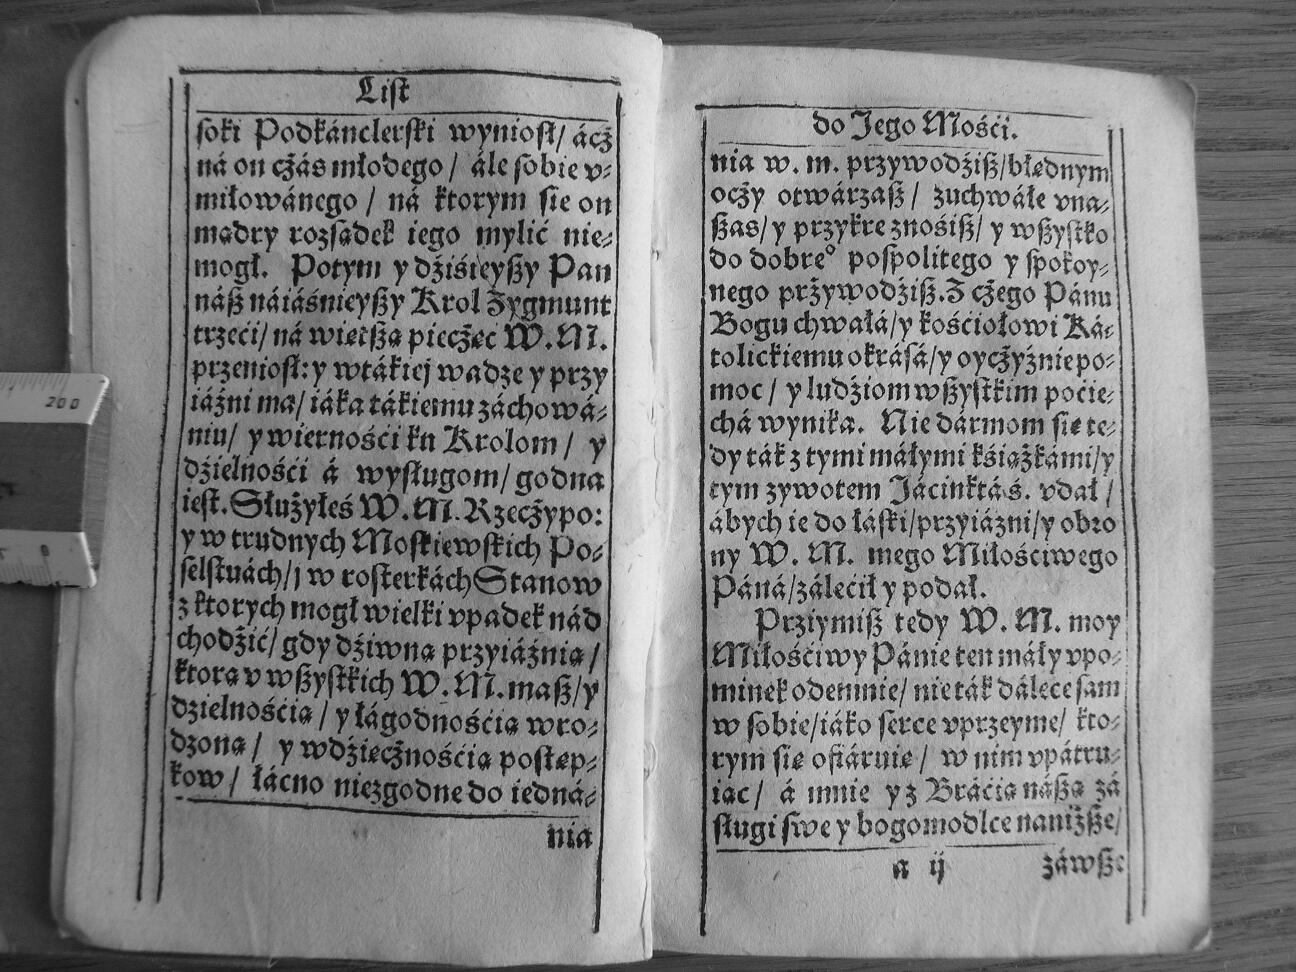 List
soki Podkánclerski wyniosł/ ácż
ná on cżás młodego/ ále sobie v-
miłowánego/ ná ktorym sie on
mądry rozsądek iego mylić nie-
mogł. Potym y dżiśieyszy Pan
nász náiáśnieyszy Krol Zygmunt
trzeći/ ná więtszą piecżęć W. M.
przeniosł: y wtákiej wadze y przy
iáźni ma/ iáka tákiemu záchowá-
niu/ y wiernośći ku Krolom/ y
dżielnośći á wysługom/ godna
iest. Służyłeś W. M. Rzecżypo:
y w trudnych Moskiewskich Po-
selstwách/ y w rosterkách Stanow
z ktorych mogł wielki vpadek nád
chodźić/ gdy dżiwną przyiáźnią/
ktorą v wszystkich W. M. masz/ y
dzielnośćią/ y łágodnośćią wro-
dzoną/ y wdźięcżnośćią postęp-
kow/ łácno niezgodne do iedná-
nia
do Jego Mośći.
nia w. m. przywodźisz/ błędnym
ocży otwárzasz/ zuchwáłe vna-
szas/ y przykre znośisz/ y wszystko
do dobre° pospolitego y spokoy-
nego przywodźisz. Z cżego Pánu
Bogu chwałá/ y kośćiołowi Ká-
tolickiemu okrásá/ y oycżyźnie po-
moc/ y ludźiom wszystkim poćie-
chá wynika. Nie dármom sie te-
dy ták z tymi máłymi kśiążkámi/ y
tym zywotem Jácinktá ś. vdał/
ábych ie do łáski/ przyiáźni/ y obro
ny W. M. mego Miłośćiwego
Páná/ zálećił y podał.
Prziymisz tedy W. M. moy
Miłośćiwy Pánie ten máły vpo-
minek odemnie/ nie ták dálece sam
w sobie/ iáko serce vprzeyme/ kto-
rym się ofiáruie/ w nim vpátru-
iąc/ á mnie y z Bráćią nászą zá
sługi swe y bogomodlce naniższe/
a ij
záwsze